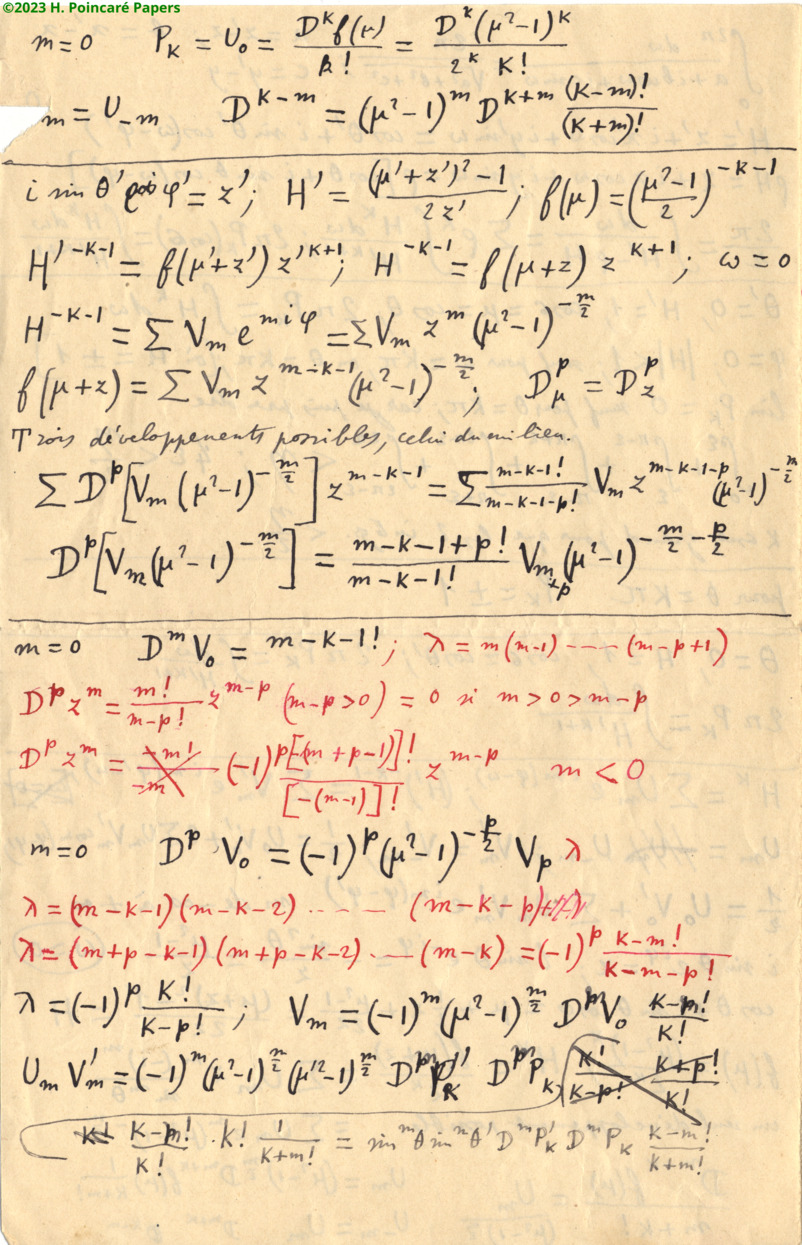 ©2023 H. Poincaré Papers
m=0 P_K = U_0 = D^K f(μ) / k! = D^K (μ²-1)^K / 2^K K!
m = U_{-m} D^{K-m} = (μ²-1)^m D^{K+m} (K-m)! / (K+m)!
i sin θ' φ' = z'; H' = (μ'+z')²-1 / 2z'; f(μ) = (μ²-1 / 2)^{-K-1}
H'^{-K-1} = f(μ'+z') z'^{K+1}; H^{-K-1} = f(μ+z) z^{K+1}; ω=0
H^{-K-1} = Σ V_m e^{miφ} = Σ V_m z^m (μ²-1)^{-m/2}
f(μ+z) = Σ V_m z^{m-k-1} (μ²-1)^{-m/2}; D_μ^p = D_z^p
Trois développements possibles, celui du milieu.
Σ D^p [V_m (μ²-1)^{-m/2}] z^{m-k-1} = Σ m-k-1! / m-k-1-p! V_m z^{m-k-1-p} (μ²-1)^{-m/2}
D^p [V_m (μ²-1)^{-m/2}] = m-k-1+p! / m-k-1! V_{m+p} (μ²-1)^{-m/2 - p/2}
m=0 D^m V_0 = m-k-1!; λ = m(m-1) ---- (m-p+1)
D^p z^m = m! / m-p! z^{m-p} (m-p>0) = 0 si m>0>m-p
D^p z^m = -m! / -m (-1)^p [-(m+p-1)]! / [-(m-1)]! z^{m-p} m<0
m=0 D^p V_0 = (-1)^p (μ²-1)^{-p/2} V_p λ
λ = (m-k-1)(m-k-2) ---- (m-k-p)
λ = (m+p-k-1)(m+p-k-2) ---- (m-k) = (-1)^p K-m! / K-m-p!
λ = (-1)^p K! / K-p!; V_m = (-1)^m (μ²-1)^{m/2} D^m V_0 K-m! / K!
U_m V'_m = (-1)^m (μ²-1)^{m/2} (μ'²-1)^{m/2} D^m P'_K D^m P_K K! / K-p! K+p! / K!
K! K-m! / K! · K! 1 / K+m! = sin^m θ sin^m θ' D^m P'_K D^m P_K K-m! / K+m!